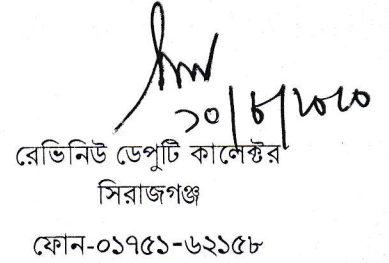 ১০/৮/২০২০
রেভিনিউ ডেপুটি কালেক্টর
সিরাজগঞ্জ
ফোন-০১৭৫১-৬২১৫৮